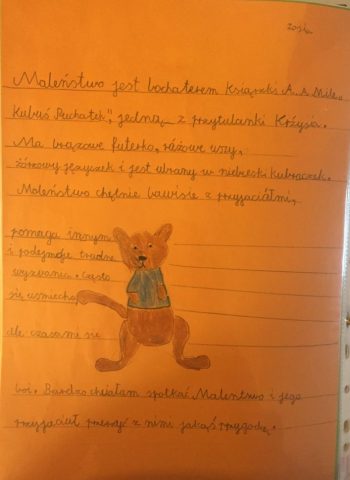 Zosia
Maleństwo jest bochaterem książki A. A. Milne
Kubuś Puchatek", jedną z przytulanki Krzysia.
Ma brązowe futerko, różowe uszy,
różowy języczek i jest ubrany w niebieski kubraczek.
Maleństwo chętnie bawisie z przyjaciółmi,
pomaga innym
i podejmuje trudne
wyzwania. Często
się uśmiecha,
ale czasami się
boi. Bardzo chciałam spotkać Maleństwo i jego
przyjaciół przeżyć z nimi jakąś przygodę.